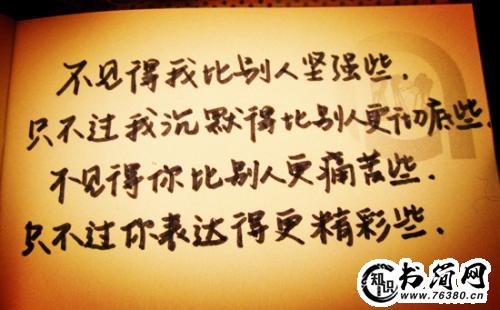 不见得我比别人坚强些.
只不过我沉默得比别人更彻底些.
不见得你比别人更痛苦些.
只不过你表达得更精彩些.
知识
书简网
www.76380.cn